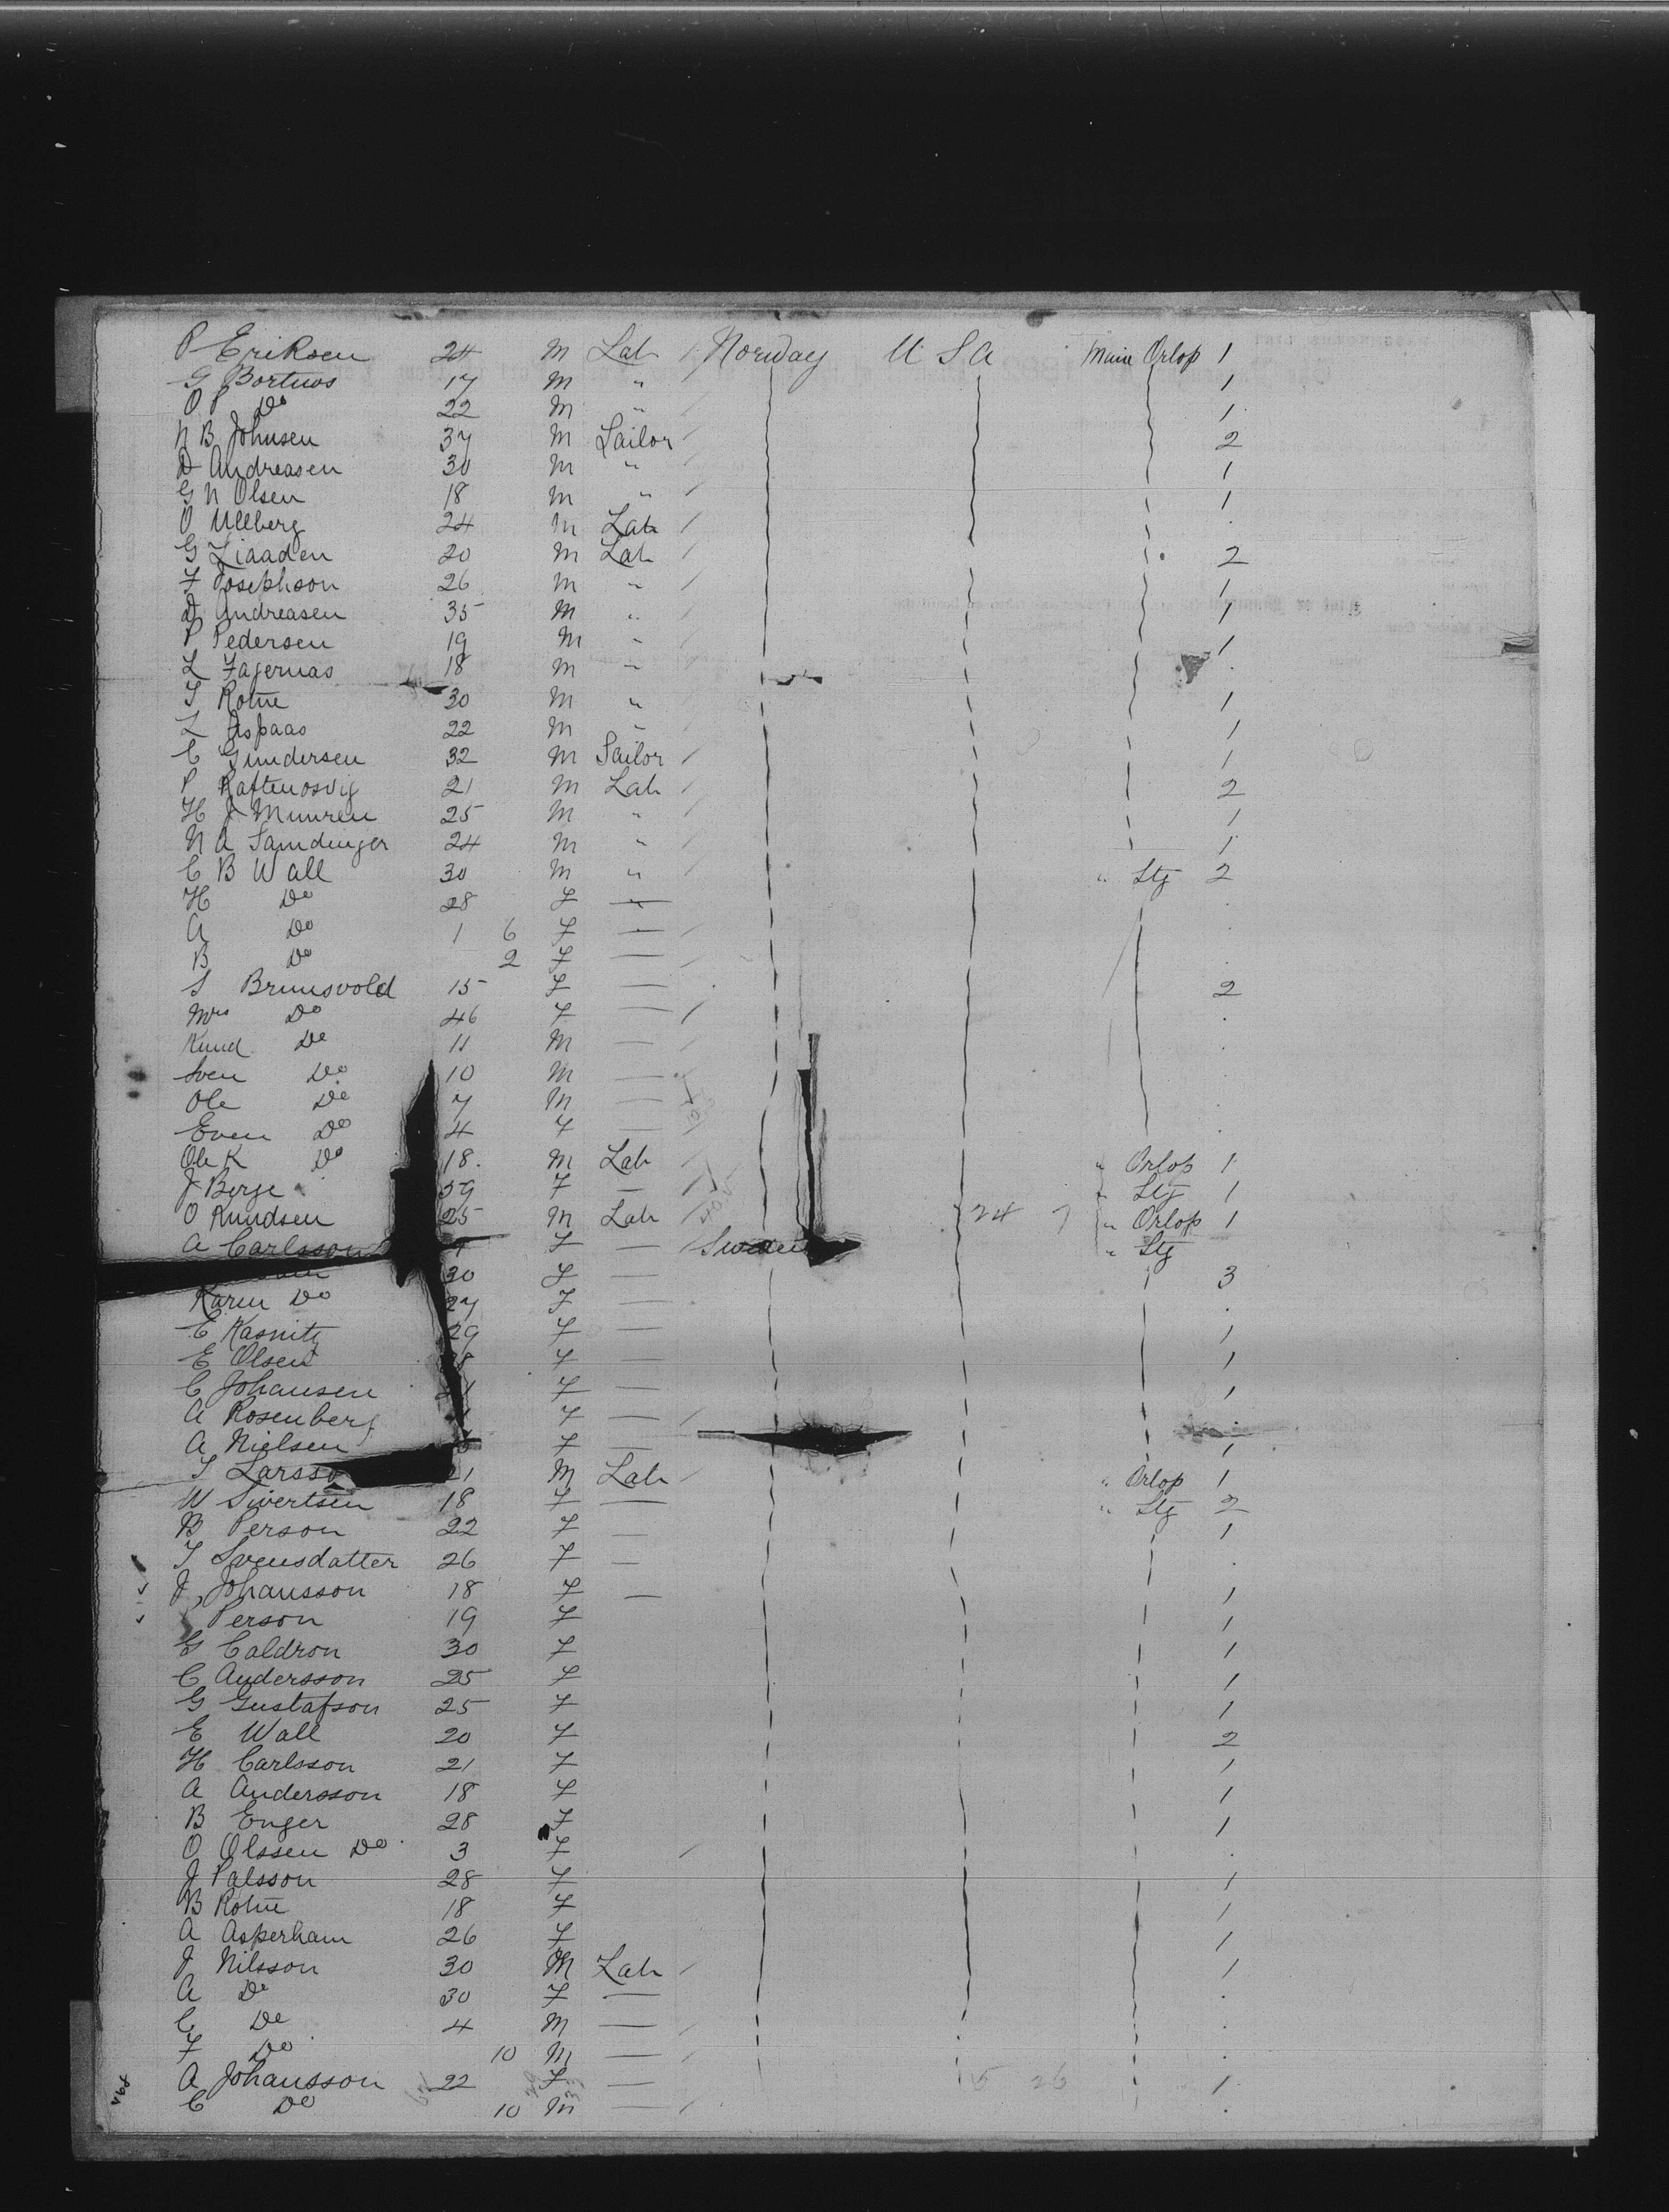 P Eriksen 24 M Lab Norway U S A Main Orlop 1
G Bortnos 17 M " 1
O P Do 22 M " 1
N B Johnsen 37 M Sailor 2
D Andreasen 30 M " 1
G N Olsen 18 M " 1
O Ullberg 24 M Lab
G 20 M Lab 2
F Josephson 26 M " 1
D Andreasen 35 M " 1
P Pedersen 19 M " 1
L Fagernas 18 M "
S Rotne 30 M " 1
L Aspaas 22 M " 1
C Gundersen 32 M Sailor 1
P 21 M Lab 2
H J 25 M " 1
N A 24 M " 1
C B Wall 30 M " " Stg 2
H Do 28 F —
A Do 1 6 F —
B Do 2 F —
S Brunsvold 15 F — 2
Mrs Do 46 F —
Knud Do 11 M —
Sven Do 10 M —
Ole Do 7 M —
Even Do 4 F —
Ole K Do 18 M Lab " Orlop 1
J Berge 59 F — " Stg 1
O Knudsen 25 M Lab 24 7 " Orlop 1
A Carlsson F — Sweden " Stg
30 F — 3
Karin Do 27 F —
E Kasnitz 29 F — 1
E Olsen F — 1
C Johansen F — 1
A Rosenberg F —
A Nielsen F — 1
T 21 M Lab " Orlop 1
W Sivertsen 18 F — " Stg 2
B Person 22 F — 1
T Svensdatter 26 F —
J Johansson 18 F — 1
Person 19 F 1
G Caldron 30 F 1
C Andersson 25 F 1
G Gustafson 25 F 1
E Wall 20 F 2
H Carlsson 21 F 1
A Andersson 18 F 1
B Enger 28 F 1
O Olssen Do 3 F
J Palsson 28 F 1
B Rotne 18 F 1
A Asperham 26 F 1
J Nilsson 30 M Lab 1
A Do 30 F —
C Do 4 M —
F Do 10 M —
A Johansson 22 F — 26 1
C Do 10 M —